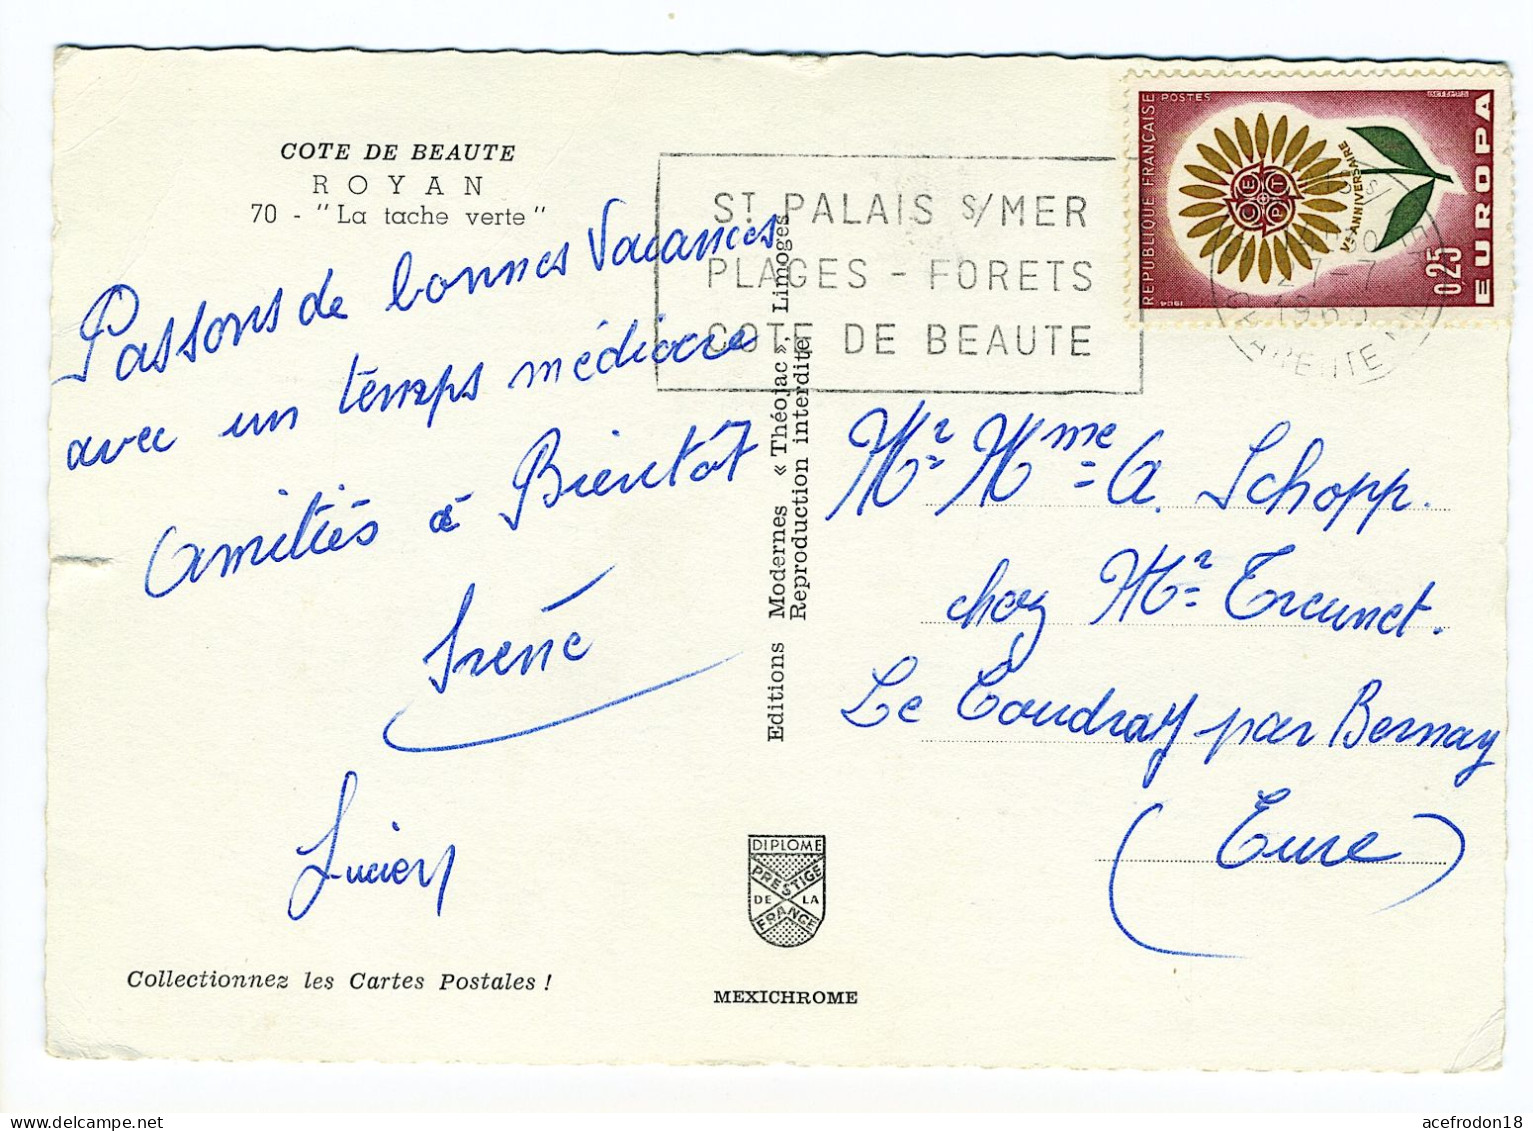 COTE DE BEAUTE
ROYAN
70 - "La tache verte"
Passons de bonnes Vacances
avec un temps médiocre
Amitiés à Bientôt
Irène
Lucien
Collectionnez les Cartes Postales !
Editions Modernes « Théojac » Limoges
Reproduction interdite
DIPLOME
PRESTIGE
DE LA
FRANCE
MEXICHROME
ST PALAIS S/MER
PLAGES - FORETS
COTE DE BEAUTE
REPUBLIQUE FRANÇAISE
POSTES
CEPT
Ve ANNIVERSAIRE
0,25
EUROPA
1964
27-7
CHARENTE
Mr Mme A. Schopp.
chez Mr Treunet.
Le Coudray par Bernay
(Eure)
acefrodon18